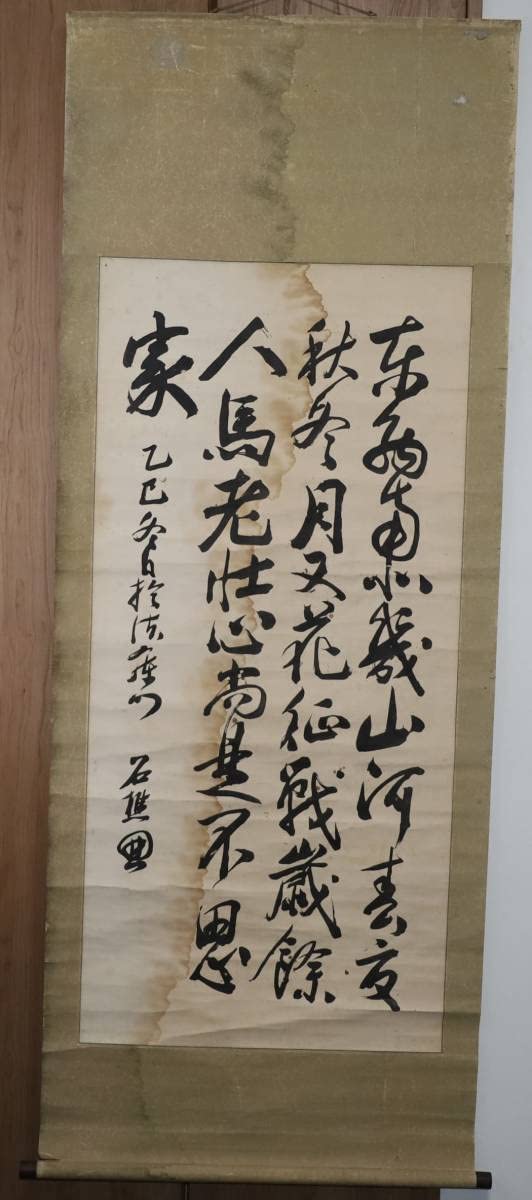 東西南北幾山河春夏
秋冬月又花征戰歲餘
人馬老壯心尚是不思
家
乙巳冬日於法庫門 石樵